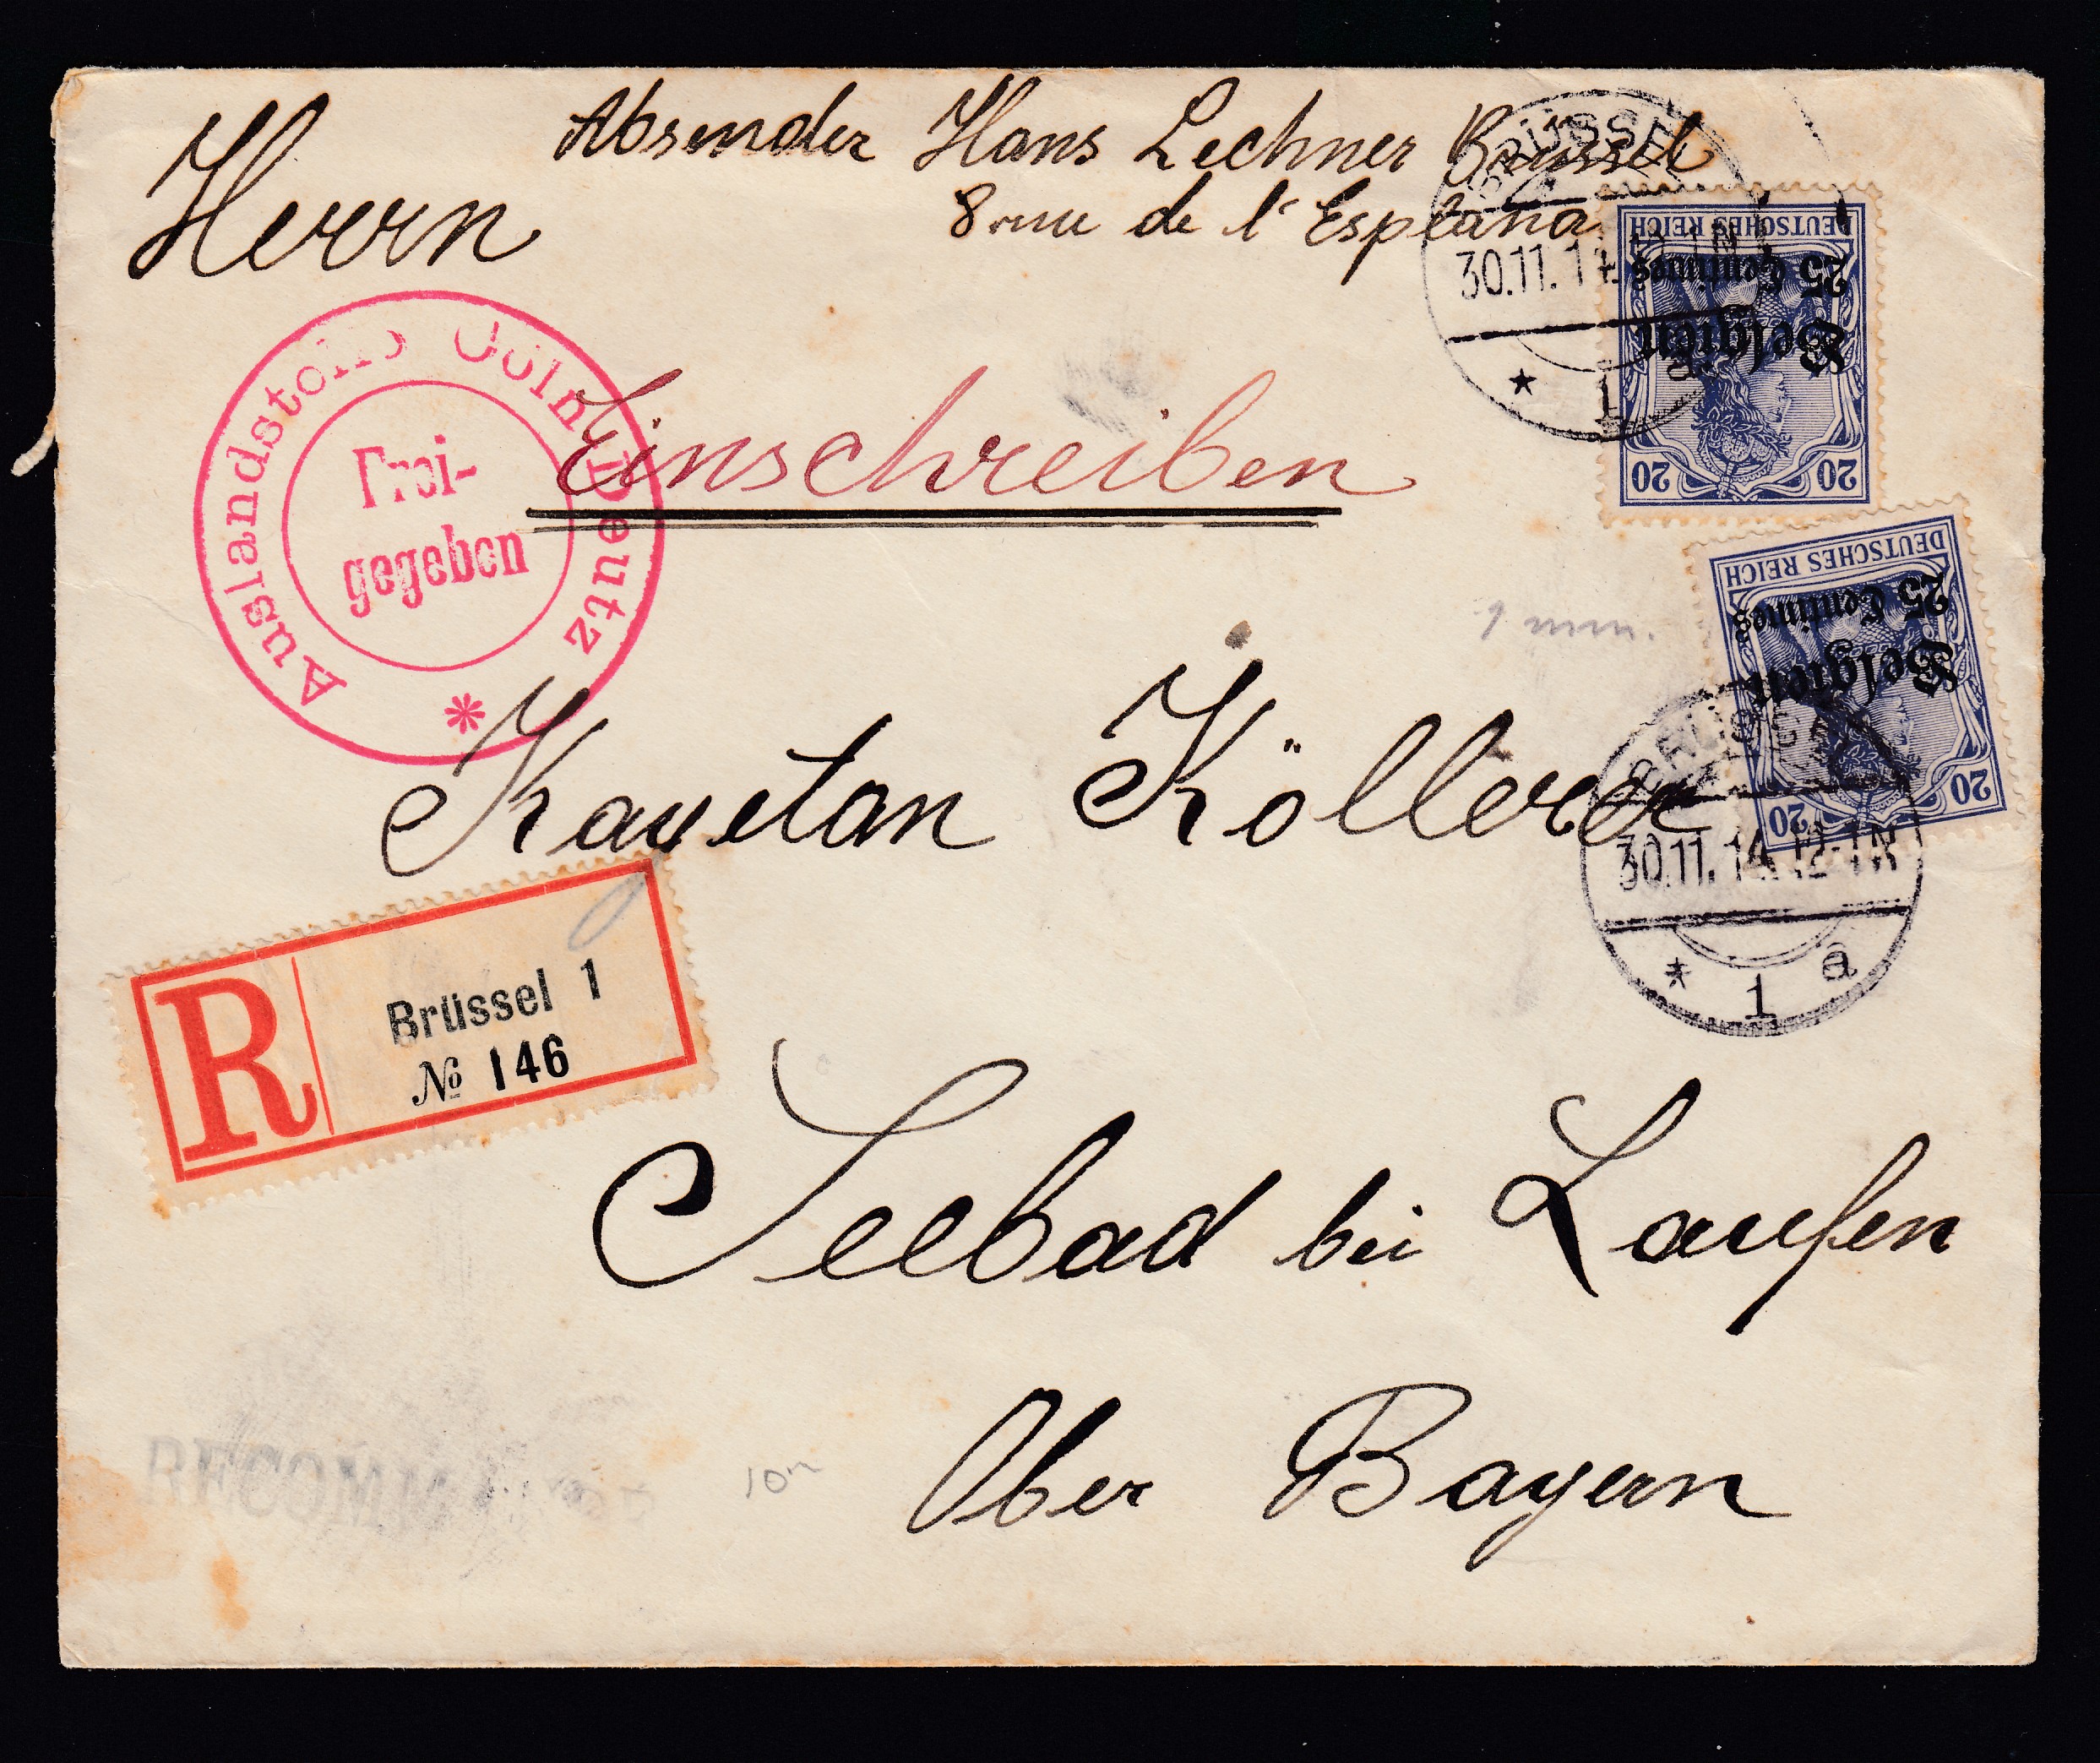 Absender Hans Lechner Brüssel
8 rue de l' Esplana
Herrn
BRÜSSEL
30.11.14. 12-1N
* 1 a
DEUTSCHES REICH
25 Centimes
Belgien
20 20
Auslandstelle Cöln Deutz
Frei-
gegeben
*
Einschreiben
9 mm.
DEUTSCHES REICH
25 Centimes
Belgien
20 20
Kayetan Köllerer
BRÜSSEL
30.11.14. 12-1N
* 1 a
R
Brüssel 1
№ 146
Seebad bei Laufen
Ober Bayern
RECOMM